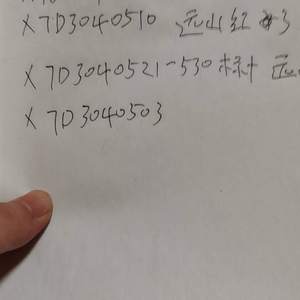 X7D3040510 远山红 #3
X7D3040521-530 绿叶 远
X7D3040503